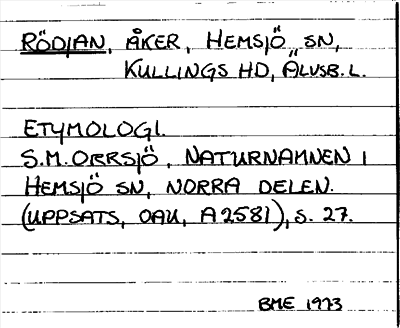 RÖDJAN, ÅKER, HEMSJÖ SN,
KULLINGS HD, ÄLVSB. L.
ETYMOLOGI.
S.M. ORRSJÖ, NATURNAMNEN I
HEMSJÖ SN, NORRA DELEN.
(UPPSATS, OAU, A2581), S. 27.
BME 1973